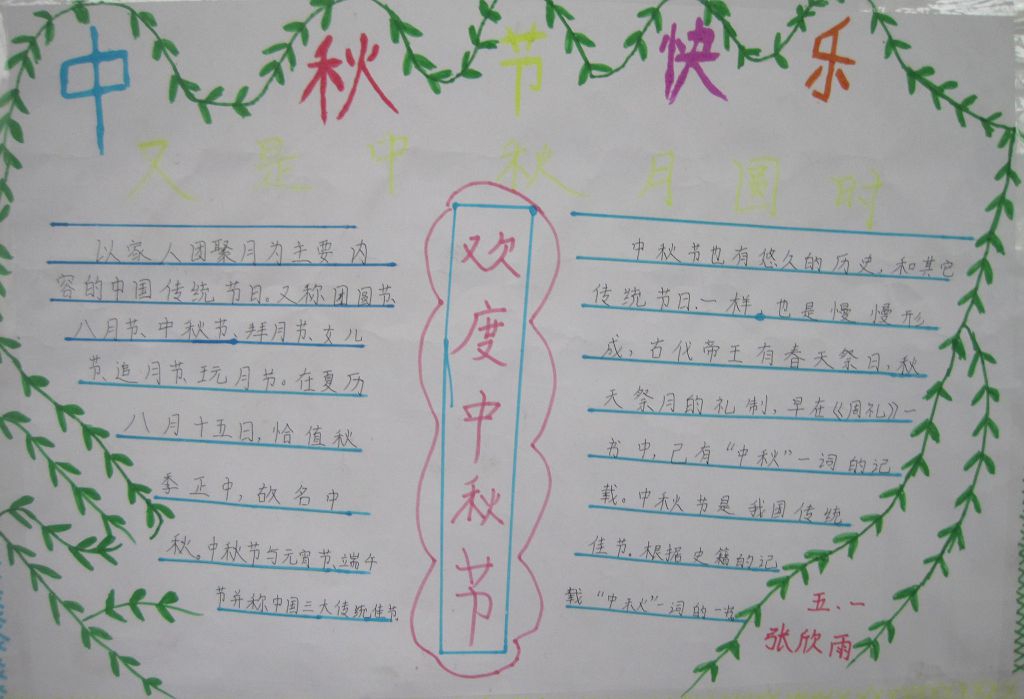 中秋节快乐
又是中秋月圆时
以家人团聚月为主要内
容的中国传统节日。又称团圆节
八月节、中秋节、拜月节、女儿
节、追月节、玩月节。在夏历
八月十五日,恰值秋
季正中,故名中
秋。中秋节与元宵节、端午
节并称中国三大传统佳节
欢度中秋节
中秋节也有悠久的历史,和其它
传统节日一样,也是慢慢形
成,古代帝王有春天祭日,秋
天祭月的礼制,早在《周礼》一
书中,已有“中秋”一词的记
载。中秋节是我国传统
佳节.根据史籍的记
载“中秋”一词的一
五.一
张欣雨